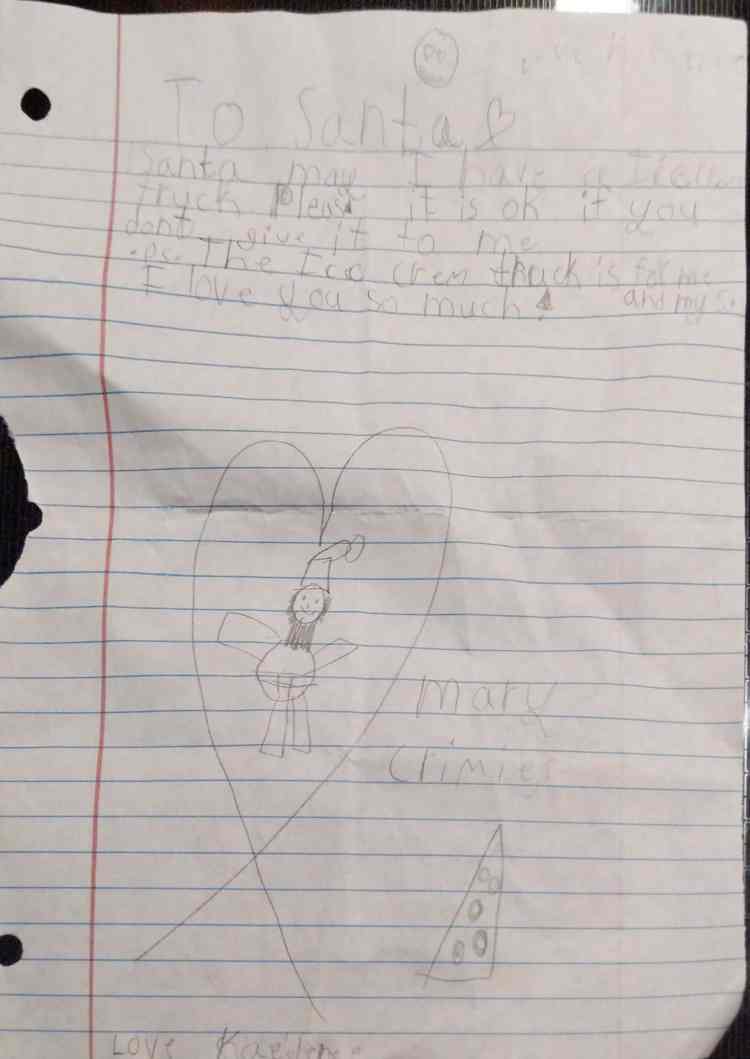 To Santa
Santa may I have a
truck Please it is ok if you
dont give it to me
.ps. The Ice crem truck is for me
and my
I love you so much!
Mary
Crimies
Love Kaeden